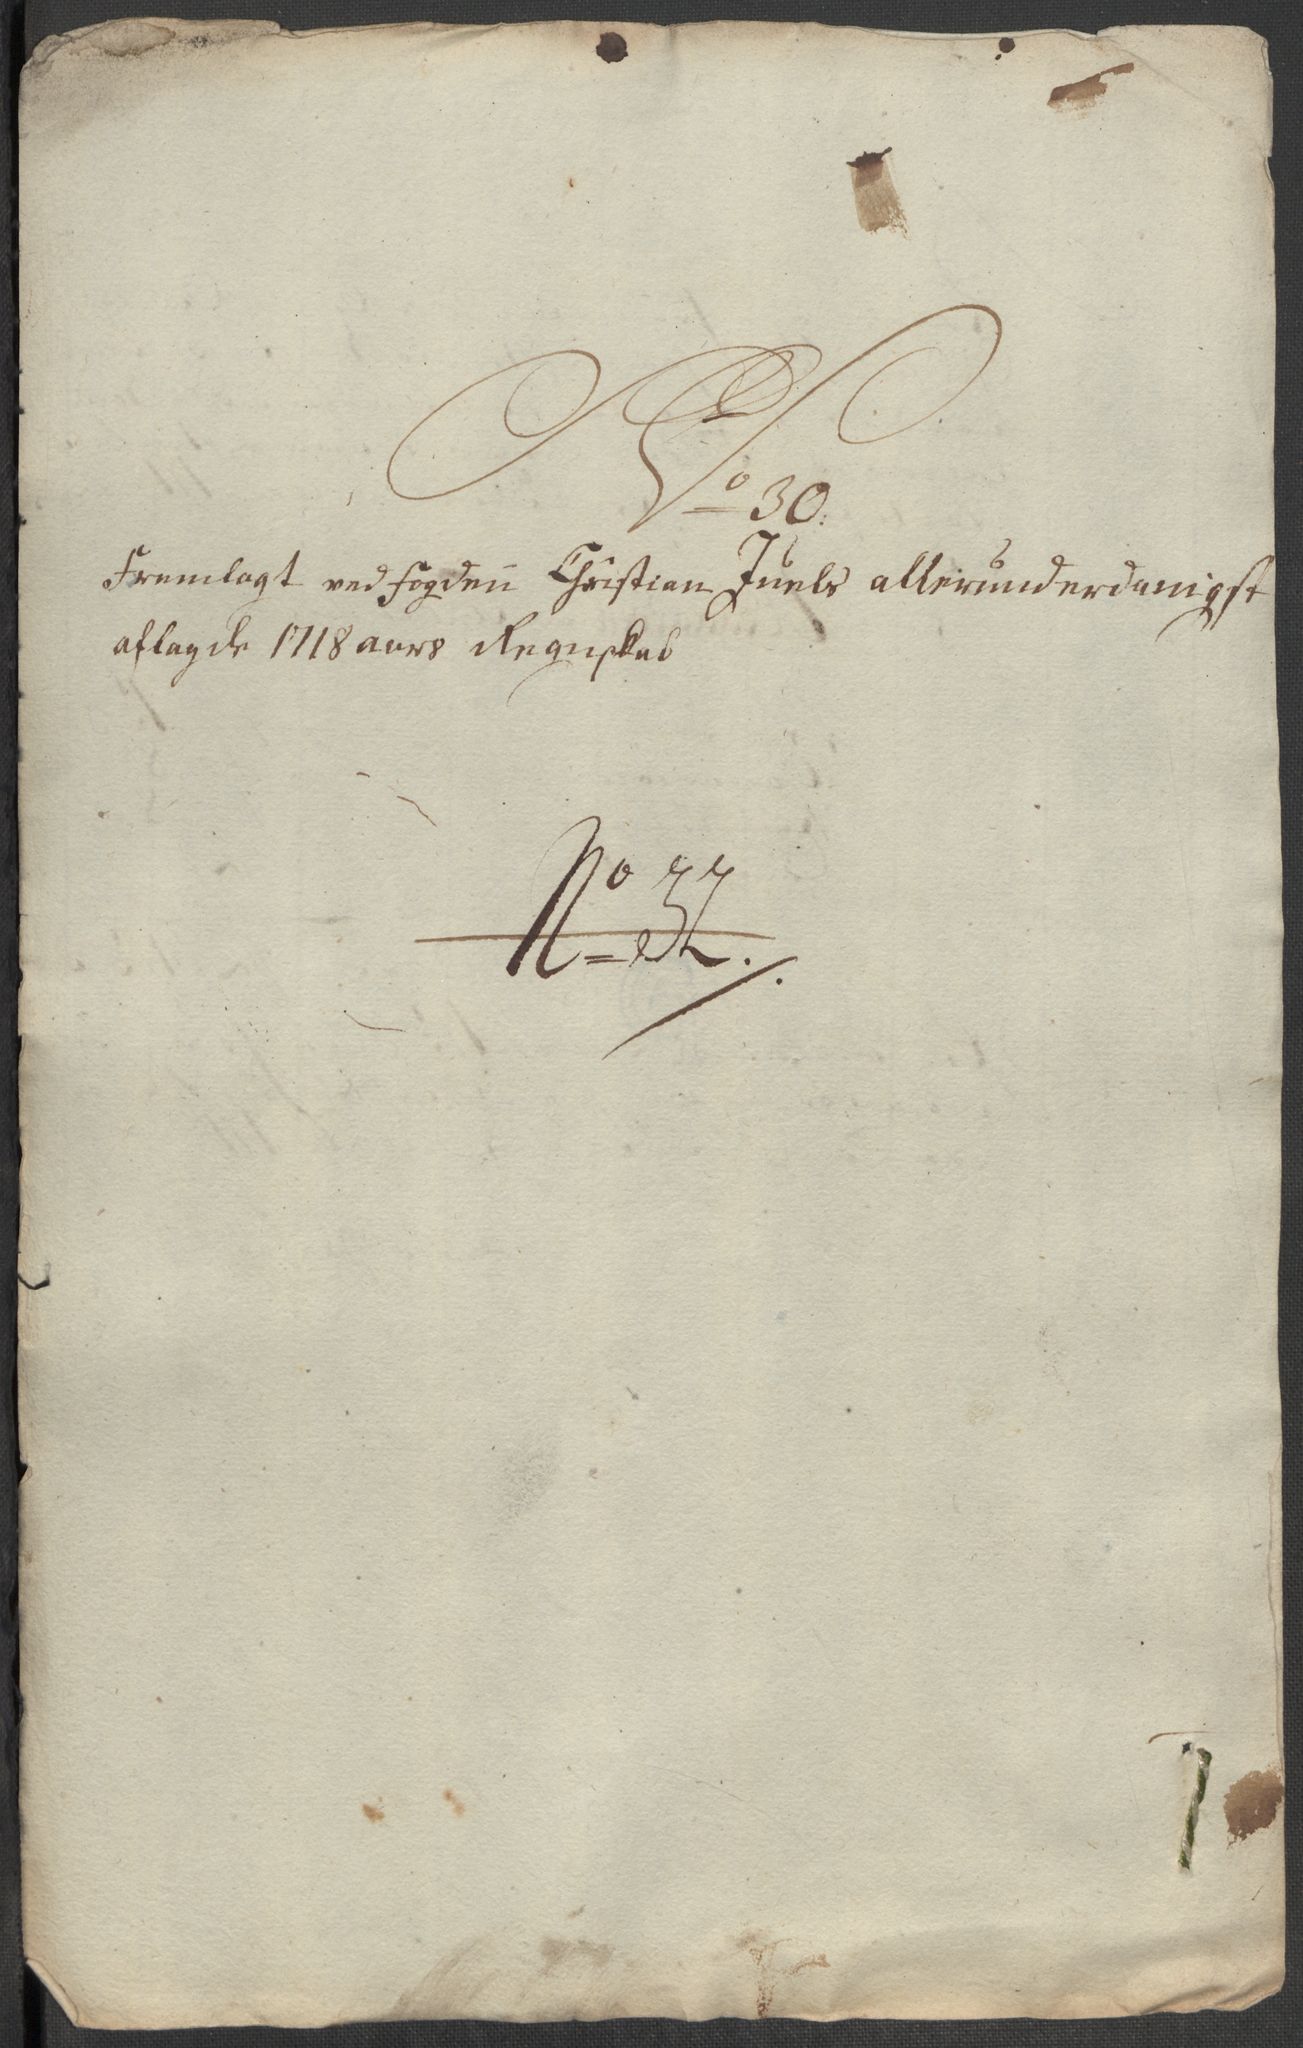 No 30:
Fremlagt ved fogden Christian Juels allerunderdanigst
aflagde 1718 aars Regnskab
No 32.